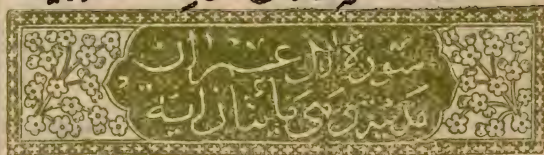 سورة ال عمران
مدنية وهي مائتان اية